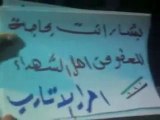 بشار انت بحاجة
للعفو من اهل الشهداء
احرار الاتارب